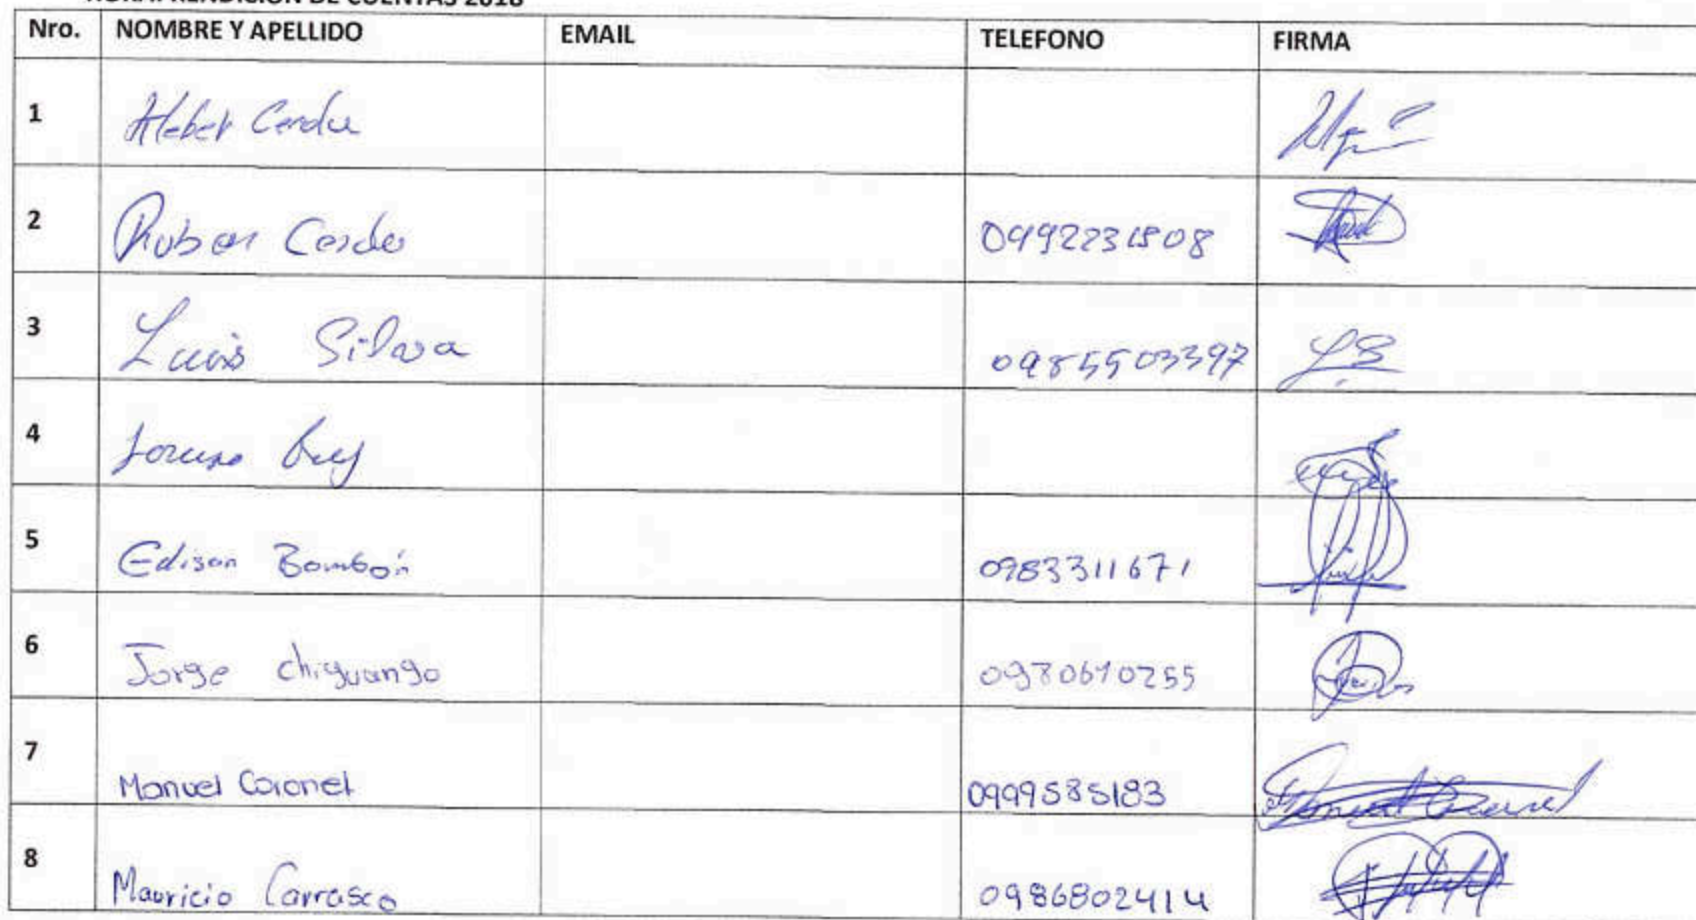 RENDICIÓN DE CUENTAS 2018
Nro. NOMBRE Y APELLIDO EMAIL TELEFONO FIRMA
1 Heber Cerda
2 Ruben Cerda 0992231808
3 Luis Silva 0985503397
4
5 Edison Bombón 0983311671
6 Jorge chiguango 0980610255
7 Manuel Coronel 0999585183
8 Mauricio Carrasco 0986802414